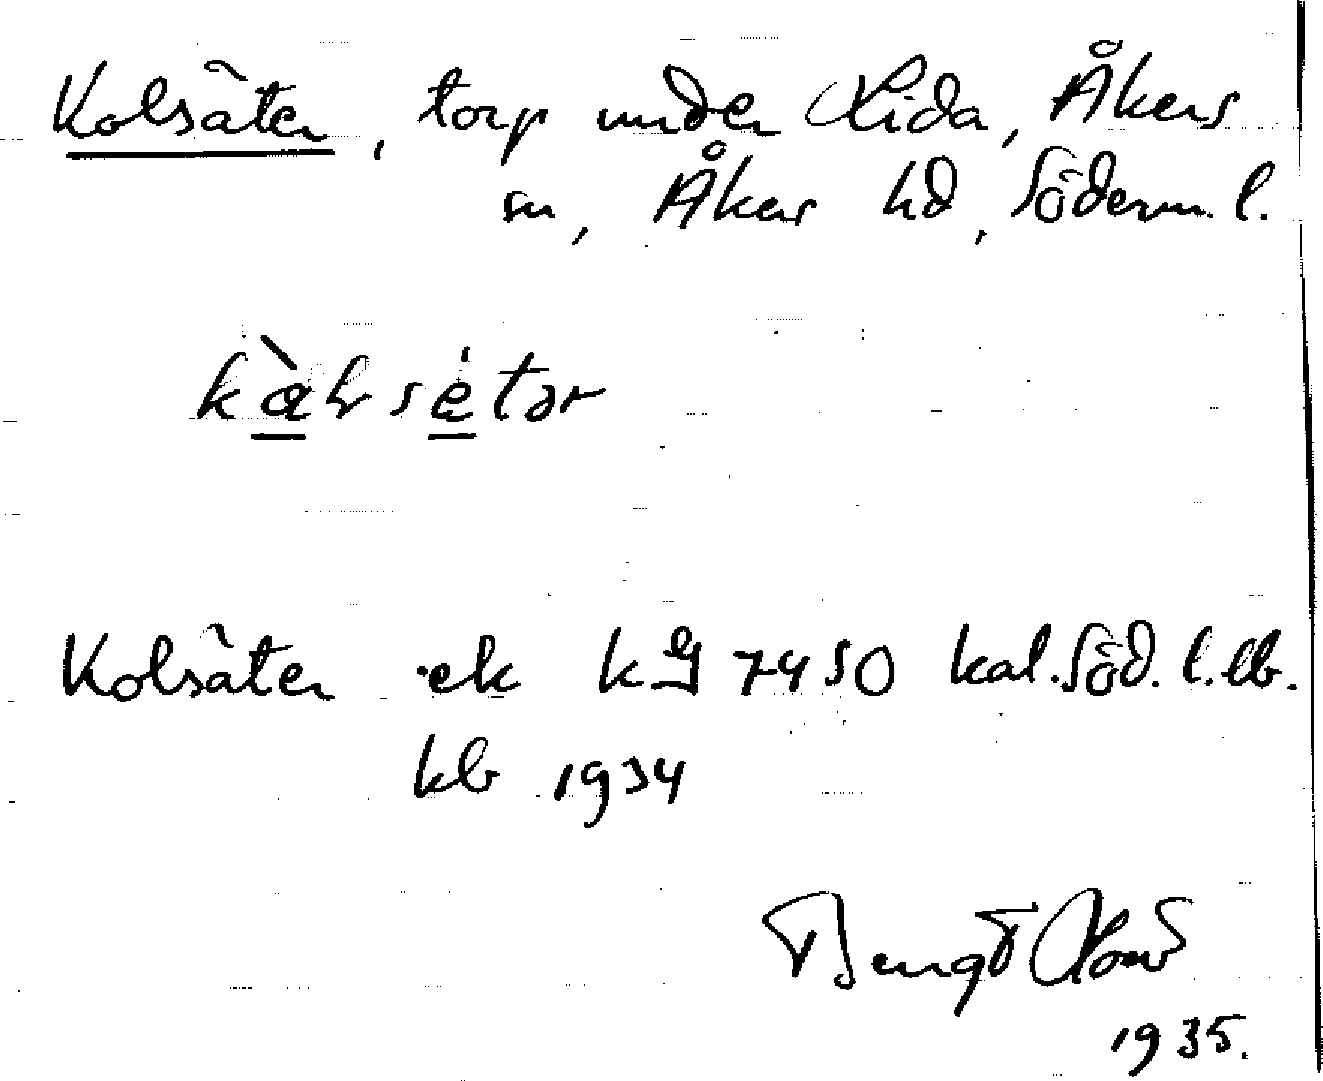 Kolsäter, torp under Lida, Åkers
sn, Åkers hd, Söderm. l.
kàlsètər
Kolsäter ek kg 7450 kal. Söd. l. lb.
kb 1934
Bengt
1935.